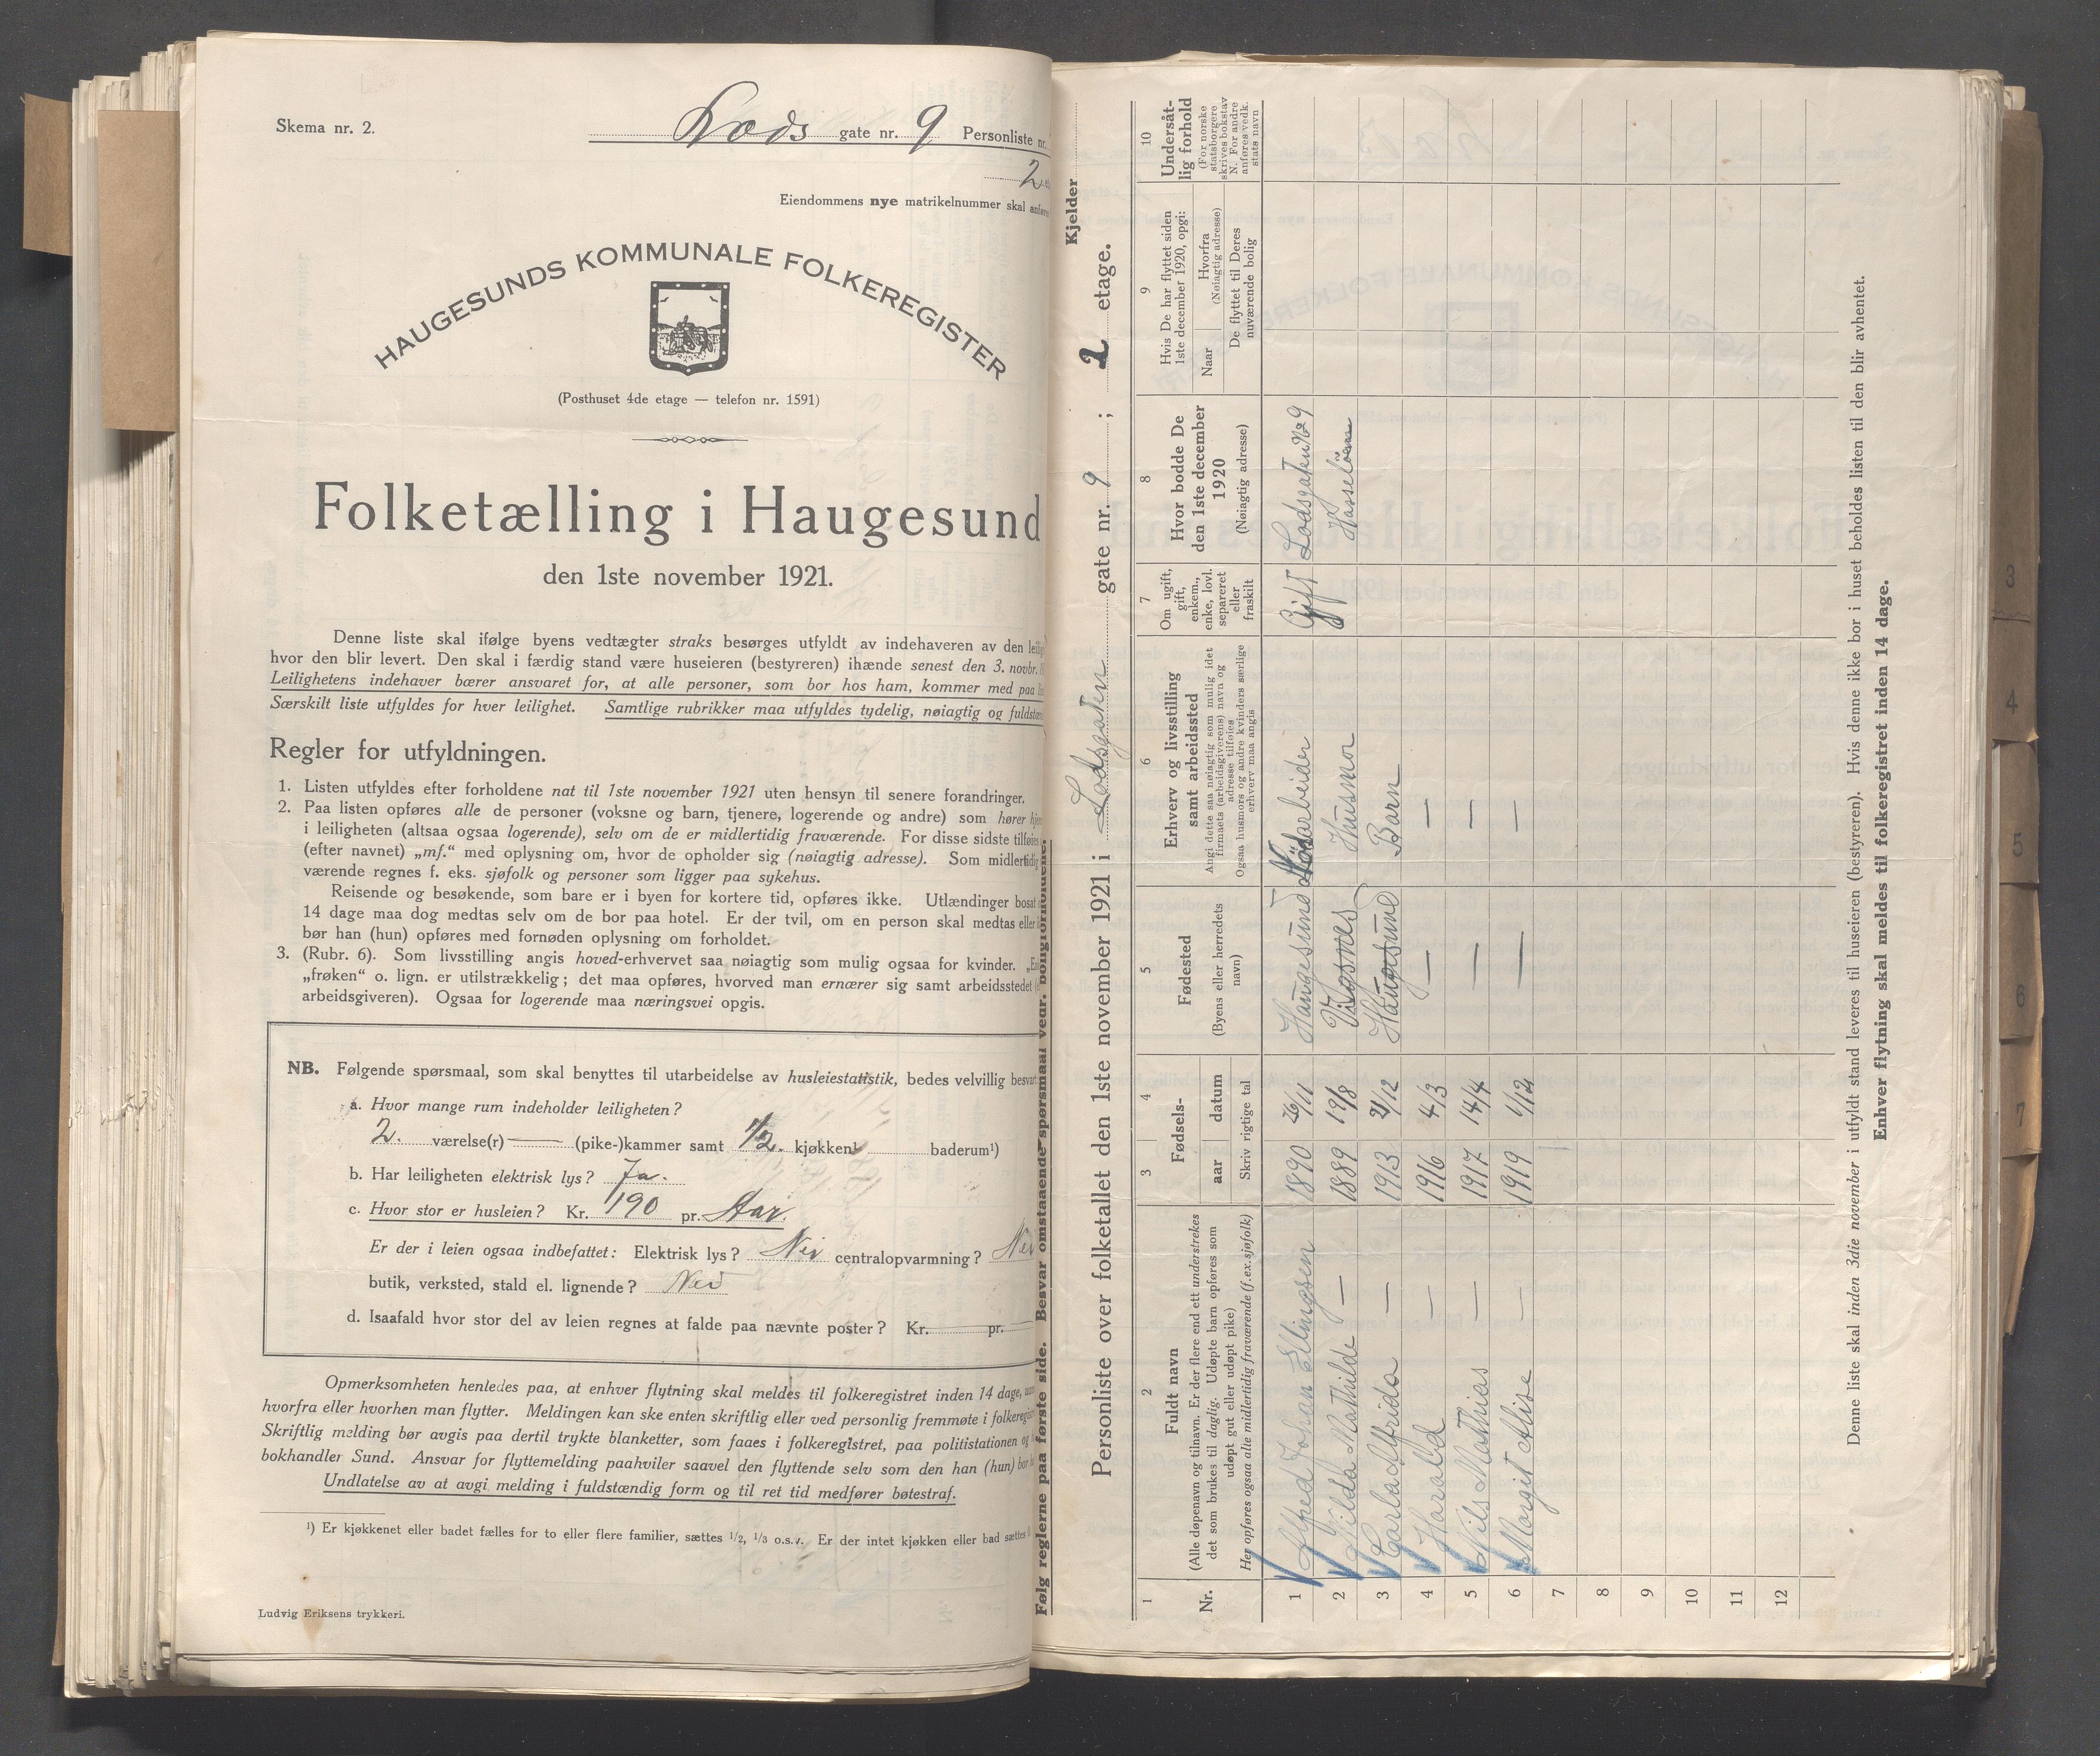 Skema nr. 2.
Lods gate nr. 9 Personliste nr.
2 et
Eiendommens nye matrikelnummer skal anføres
HAUGESUNDS KOMMUNALE FOLKEREGISTER
(Posthuset 4de etage — telefon nr. 1591)
Folketælling i Haugesund
den 1ste november 1921.
Denne liste skal ifølge byens vedtægter straks besørges utfyldt av indehaveren av den leilig
hvor den blir levert. Den skal i færdig stand være huseieren (bestyreren) ihænde senest den 3. novbr.
Leilighetens indehaver bærer ansvaret for, at alle personer, som bor hos ham, kommer med paa
Særskilt liste utfyldes for hver leilighet. Samtlige rubrikker maa utfyldes tydelig, nøiagtig og fuldstæn
Regler for utfyldningen.
1. Listen utfyldes efter forholdene nat til 1ste november 1921 uten hensyn til senere forandringer.
2. Paa listen opføres alle de personer (voksne og barn, tjenere, logerende og andre) som hører hjem
i leiligheten (altsaa ogsaa logerende), selv om de er midlertidig fraværende. For disse sidste tilføies
(efter navnet) „mf.“ med oplysning om, hvor de opholder sig (nøiagtig adresse). Som midlertidig
værende regnes f. eks. sjøfolk og personer som ligger paa sykehus.
Reisende og besøkende, som bare er i byen for kortere tid, opføres ikke. Utlændinger bosat
14 dage maa dog medtas selv om de bor paa hotel. Er der tvil, om en person skal medtas eller
bør han (hun) opføres med fornøden oplysning om forholdet.
3. (Rubr. 6). Som livsstilling angis hoved-erhvervet saa nøiagtig som mulig ogsaa for kvinder.
„frøken“ o. lign. er utilstrækkelig; det maa opføres, hvorved man ernærer sig samt arbeidsstedet
arbeidsgiveren). Ogsaa for logerende maa næringsvei opgis.
NB. Følgende spørsmaal, som skal benyttes til utarbeidelse av husleiestatistik, bedes velvillig besvart
a. Hvor mange rum indeholder leiligheten?
2. værelse(r) — (pike-)kammer samt 1/2. kjøkken baderum¹)
b. Har leiligheten elektrisk lys? Ja.
c. Hvor stor er husleien? Kr. 190 pr. Aar.
Er der i leien ogsaa indbefattet: Elektrisk lys? Nei centralopvarmning? Nei
butik, verksted, stald el. lignende? Nei
d. Isaafald hvor stor del av leien regnes at falde paa nævnte poster? Kr. — pr. —
Opmerksomheten henledes paa, at enhver flytning skal meldes til folkeregistret inden 14 dage,
hvorfra eller hvorhen man flytter. Meldingen kan ske enten skriftlig eller ved personlig fremmøte i folkeregist
Skriftlig melding bør avgis paa dertil trykte blanketter, som faaes i folkeregistret, paa politistationen og
bokhandler Sund. Ansvar for flyttemelding paahviler saavel den flyttende selv som den han (hun) bor
Undlatelse av at avgi melding i fuldstændig form og til ret tid medfører bøtestraf.
¹) Er kjøkkenet eller badet fælles for to eller flere familier, sættes 1/2, 1/3 o.s.v. Er der intet kjøkken eller bad sættes 0
Ludvig Eriksens trykkeri.
Følg reglerne paa første side. Besvar omstaaende spørsmaal vedr. boligforholdene.
Kjelder
Personliste over folketallet den 1ste november 1921 i Lodsgaten gate nr. 9 ; 2 etage.
1 2 3 4 5 6 7 8 9 10
Nr.
Fuldt navn
(Alle døpenavn og tilnavn. Er der flere end ett understrekes
det som brukes til daglig. Udøpte barn opføres som
udøpt gut eller udøpt pike)
Her opføres ogsaa alle midlertidig fraværende (f.ex.sjøfolk)
Fødsels-
aar datum
Skriv rigtige tal
Fødested
(Byens eller herredets
navn)
Erhverv og livsstilling
samt arbeidssted
Angi dette saa nøiagtig som mulig idet
firmaets (arbeidsgiverens) navn og
adresse tilføies
Ogsaa husmors og andre kvinders særlige
erhverv maa angis
Om ugift,
gift,
enkem.,
enke, lovl.
separeret
eller
fraskilt
Hvor bodde De
den 1ste december
1920
(Nøiagtig adresse)
Hvis De har flyttet siden
1ste december 1920, opgi:
Naar
Hvorfra
(Nøiagtig adresse)
De flyttet til Deres
nuværende bolig
Undersåt-
lig forhold
(For norske
statsborgere
skrives bokstav
N. For andre
anføres vedk.
stats navn
1 Alfred Johan Ellingsen 1890 26/11 Haugesund arbeider Gift Lodsgaten No 9
2 Hilda Mathilde — 1889 19/8 Vigsnes Husmor Hasseløen
3 Carla Alfrida — 1913 21/12 Haugesund Barn
4 Harald — 1916 4/3 — —
5 Nils Mathias — 1917 14/4 — —
6 Margit Alise — 1919 1/12 — —
7
8
9
10
11
12
Denne liste skal inden 3die november i utfyldt stand leveres til huseieren (bestyreren). Hvis denne ikke bor i huset beholdes listen til den blir avhentet.
Enhver flytning skal meldes til folkeregistret inden 14 dage.
3
4
5
6
7